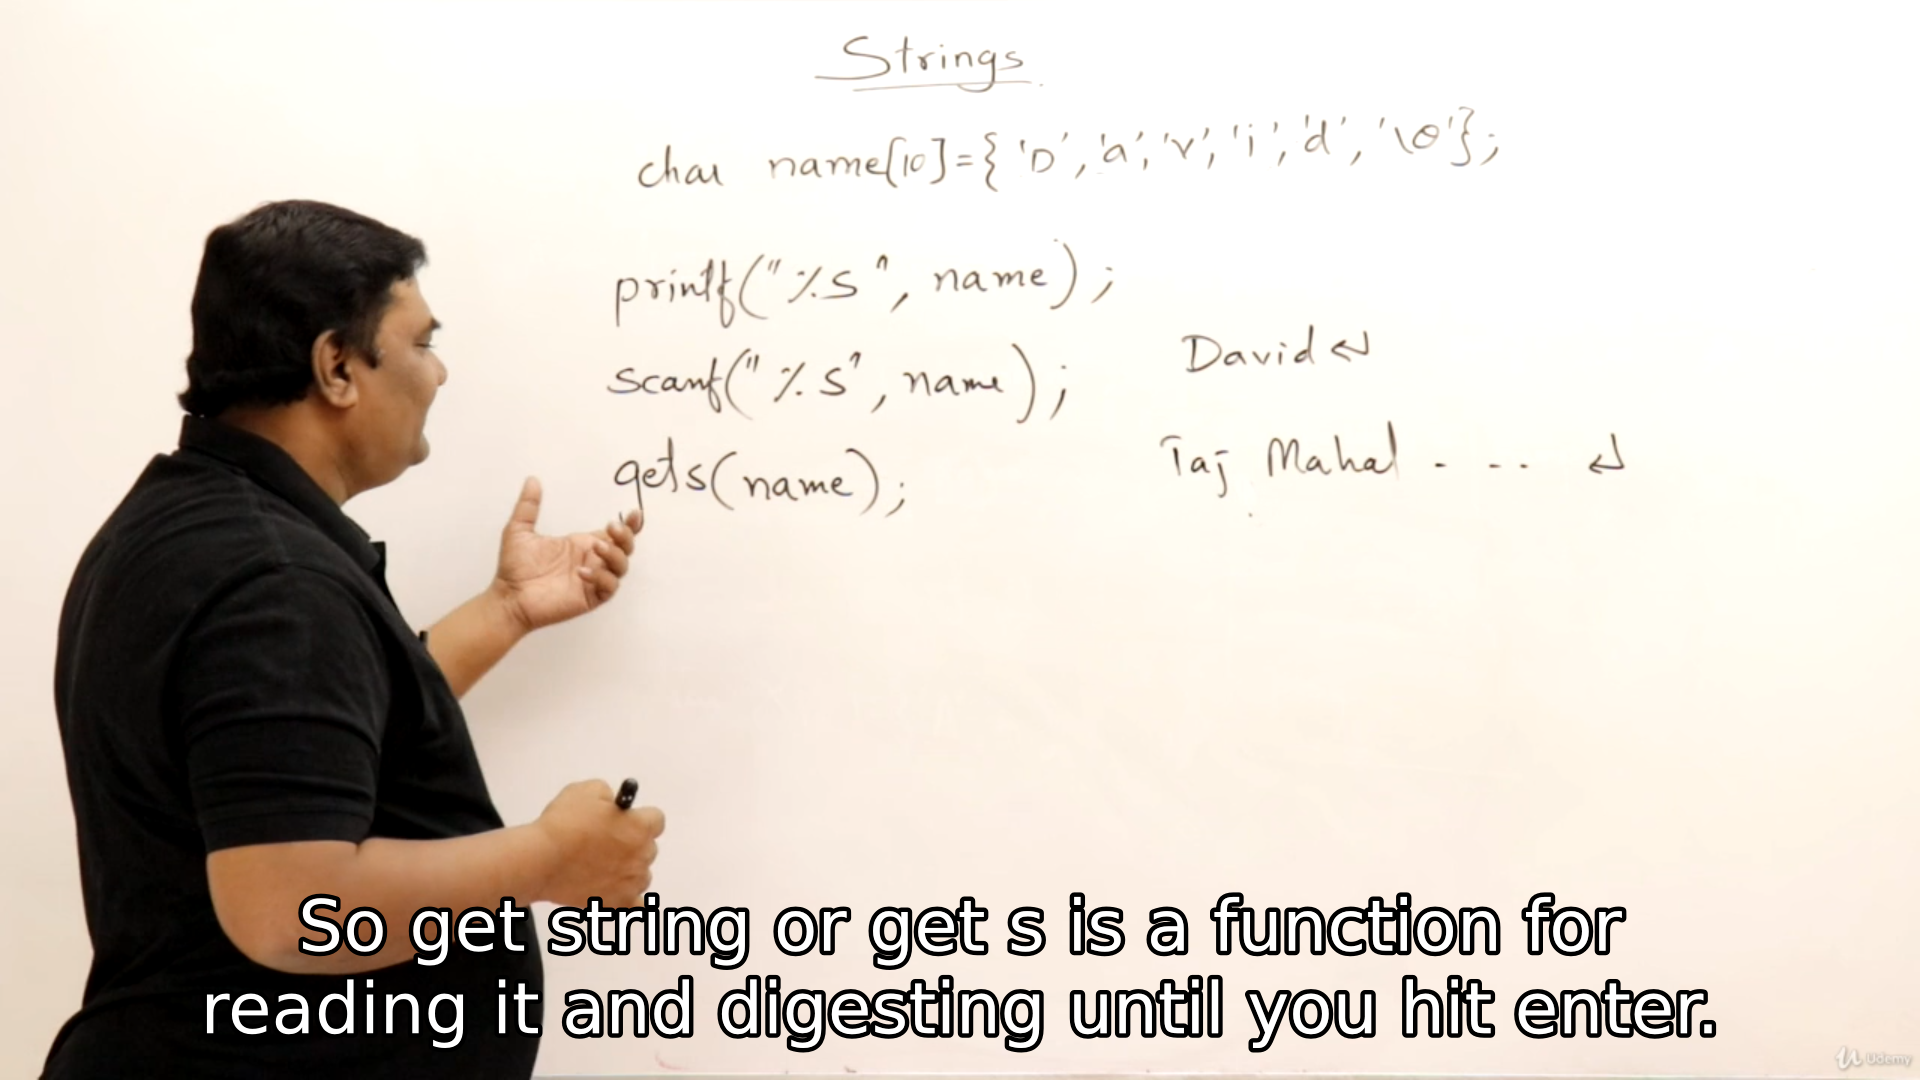 Strings
char name[10]={'D','a','v','i','d','\0'};
printf("%s", name);
scanf("%s", name); David↵
gets(name); Taj Mahal - - - - ↵
So get string or get s is a function for
reading it and digesting until you hit enter.
Udemy